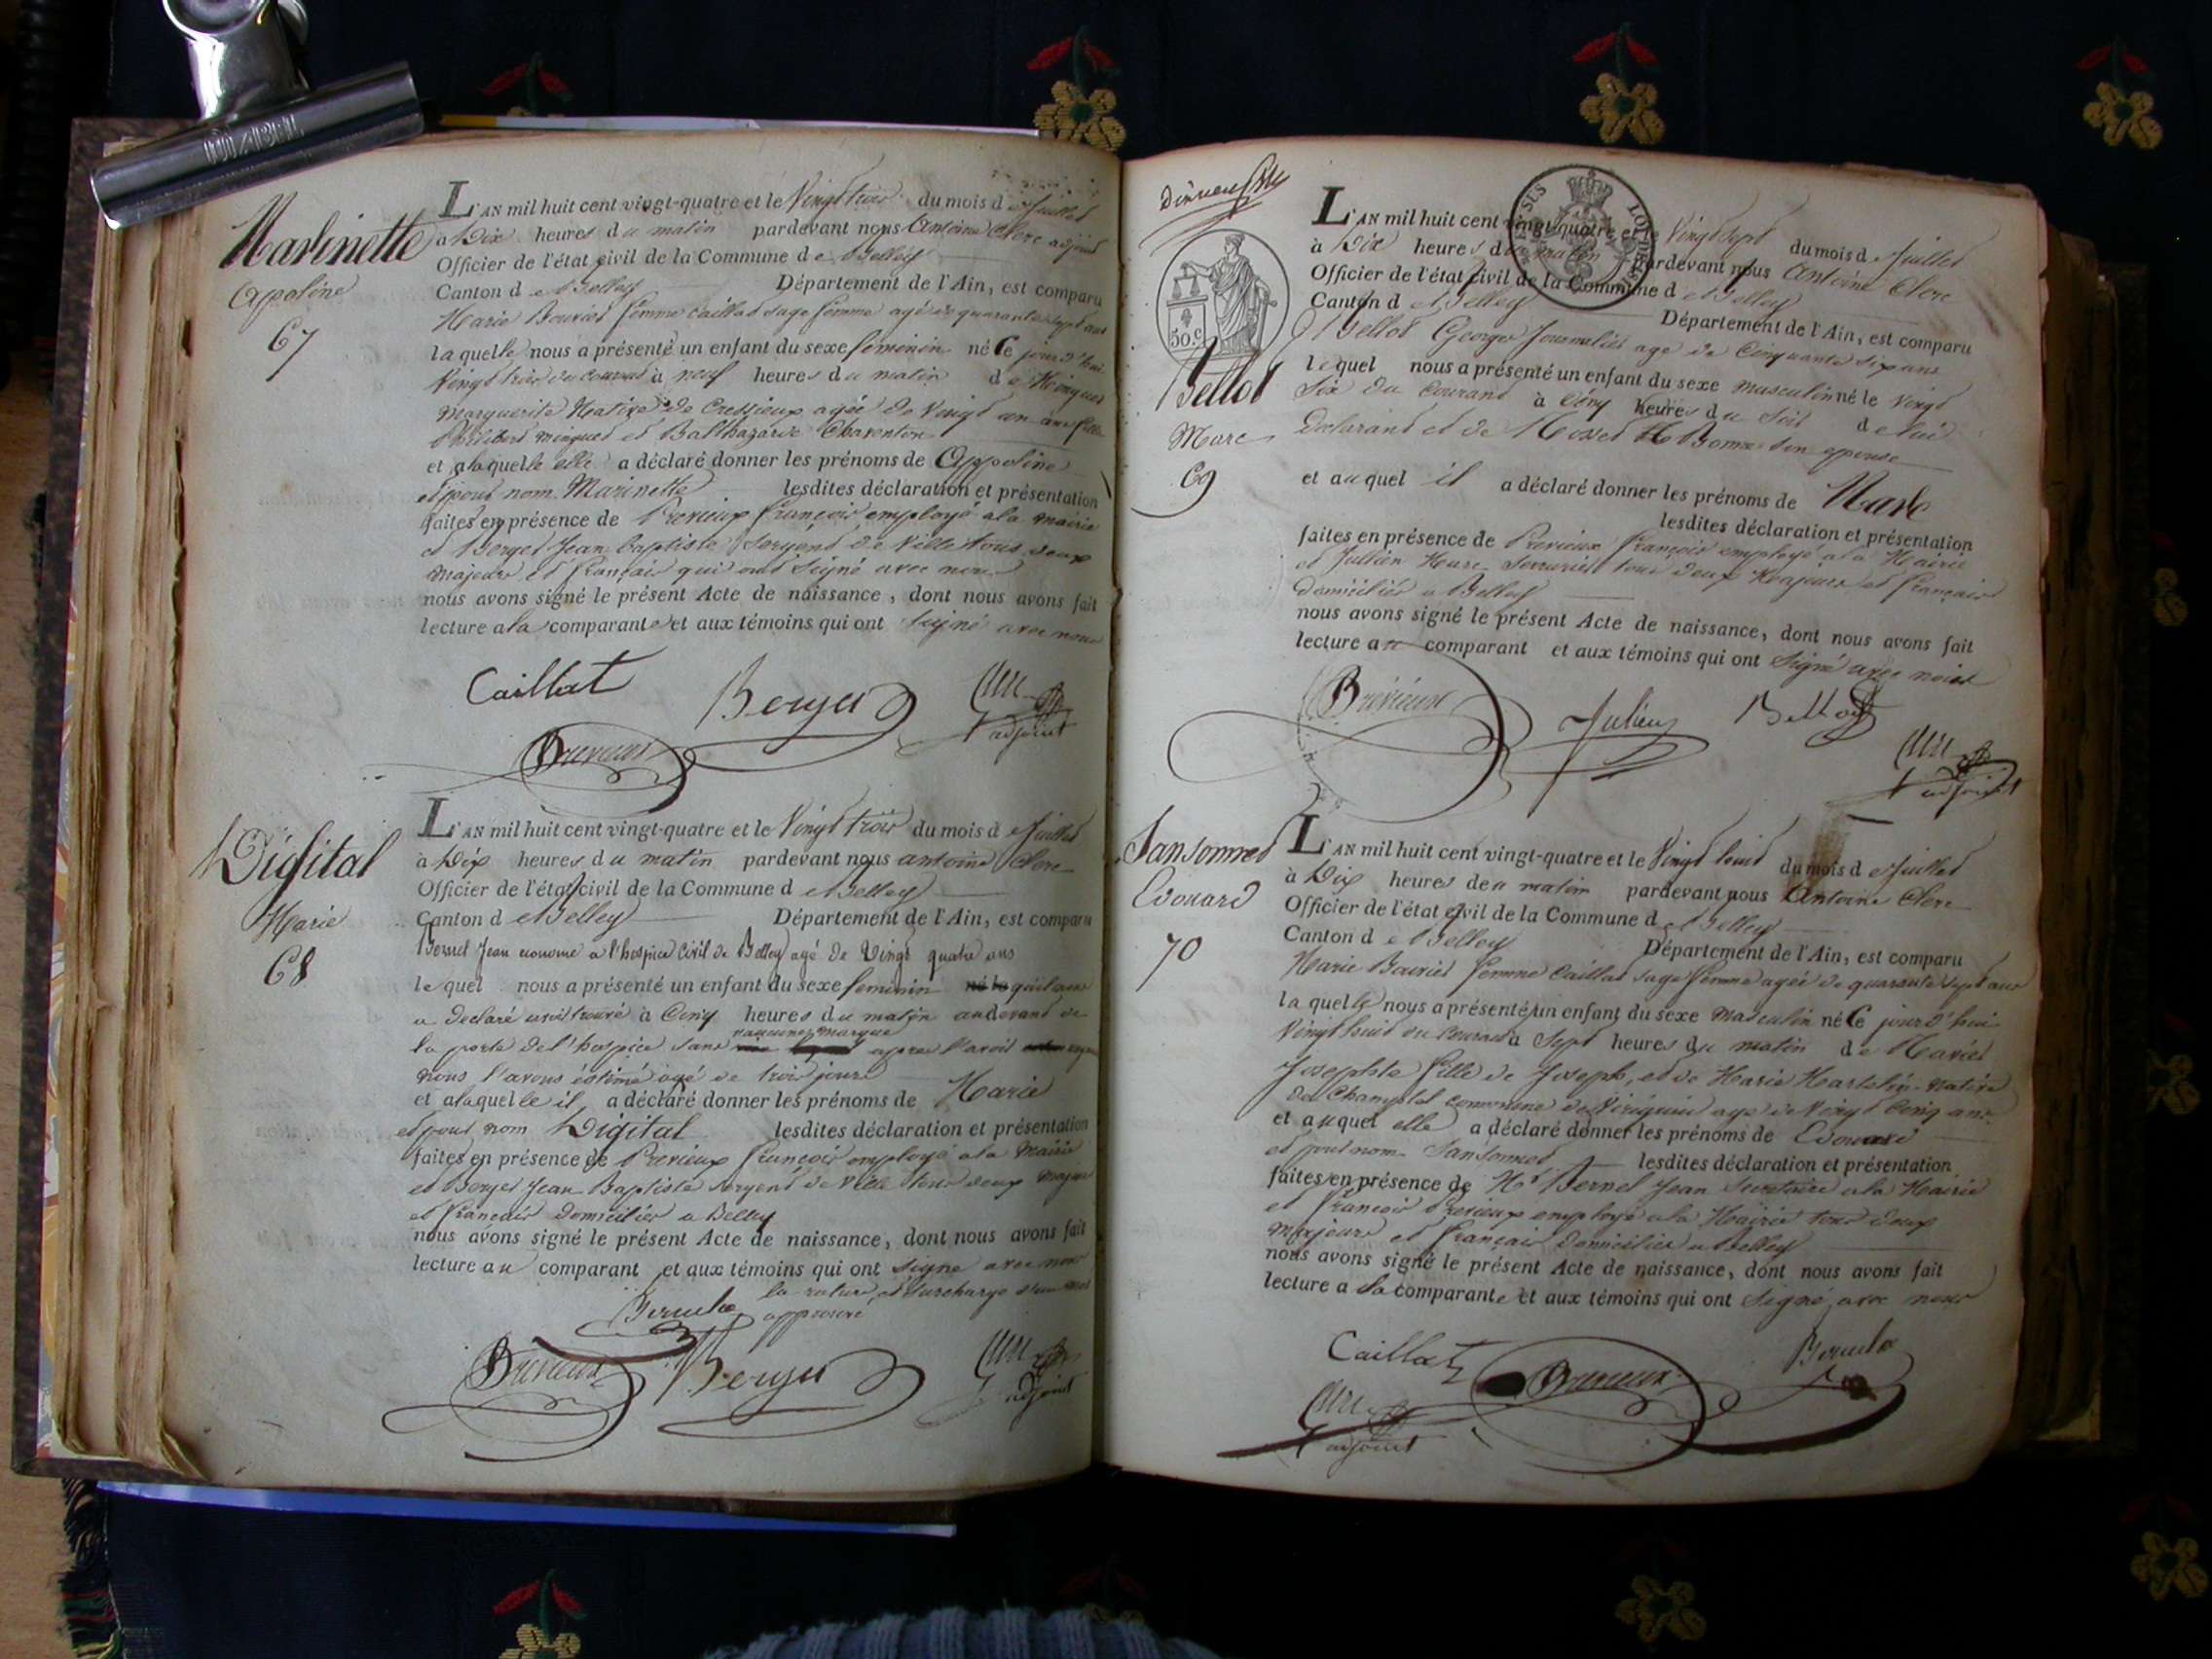 Marinette
Apoline
67
L'AN mil huit cent vingt-quatre et le Vingt trois du mois de Juillet
à Dix heures du matin pardevant nous Antoine Clerc adjoint
Officier de l'état civil de la Commune de Belley
Canton de Belley Département de l'Ain, est comparu
Marie Bouvier femme Caillat sage femme agée de quarante sept ans
laquelle nous a présenté un enfant du sexe feminin né Ce jourd'hui
Vingt trois du courant à neuf heures du matin de
Marguerite Native de Cressieux agée de Vingt un ans fille
et Balthazarde Charenton
et alaquelle elle a déclaré donner les prénoms de Appoline
et pour nom Marinette lesdites déclaration et présentation
faites en présence de Previeux françois employé ala mairie
et Berger Jean baptiste Sergent de Ville tous deux
majeurs et français qui ont signé avec nous
nous avons signé le présent Acte de naissance, dont nous avons fait
lecture ala comparante et aux témoins qui ont signé avec nous
Caillat Berger Clerc
adjoint
Previeux
Digital
Marie
68
L'AN mil huit cent vingt-quatre et le Vingt trois du mois de Juillet
à Dix heures du matin pardevant nous antoine Clerc
Officier de l'état civil de la Commune de Belley
Canton de Belley Département de l'Ain, est comparu
Jean econome a l'hospice Civil de Belley agé de Vingt quatre ans
lequel nous a présenté un enfant du sexe feminin né le quil nous
a declaré avoir trouvé à Cinq heures du matin audevant de
la porte de l'hospice sans aucunes marque apres l'avoir
nous l'avons éstimé agé de trois jours
et alaquelle il a déclaré donner les prénoms de Marie
et pour nom Digital lesdites déclaration et présentation
faites en présence de Previeux françois employé ala Mairie
et Berger Jean Baptiste sergent de Ville tous deux majeurs
et français domiciliés a Belley
nous avons signé le présent Acte de naissance, dont nous avons fait
lecture au comparant et aux témoins qui ont signé avec nous
la rature et surcharge
approuvé
Previeux Berger Clerc
adjoint
50 c
Bellod
Marc
69
L'AN mil huit cent vingt-quatre et le Vingt sept du mois de Juillet
à Dix heures du matin pardevant nous Antoine Clerc
Officier de l'état civil de la Commune de Belley
Canton de Belley Département de l'Ain, est comparu
Bellod George Journalier agé de Cinquante six ans
lequel nous a présenté un enfant du sexe masculin né le Vingt
Six du Courant à Cinq heures du Soir de lui
Declarant et de son epouse
et auquel il a déclaré donner les prénoms de Marc
lesdites déclaration et présentation
faites en présence de Previeux françois employé ala Mairie
et Jullien Marc Serrurier tous deux Majeurs et français
domiciliés a Belley
nous avons signé le présent Acte de naissance, dont nous avons fait
lecture au comparant et aux témoins qui ont signé avec nous
Prévieux Julien Bellod
Clerc
adjoint
Sansonnet
Edouard
70
L'AN mil huit cent vingt-quatre et le Vingt huit du mois de Juillet
à Dix heures deu matin pardevant nous Antoine Clerc
Officier de l'état civil de la Commune de Belley
Canton de Belley Département de l'Ain, est comparu
Marie Bouvier femme Caillat sage femme agée de quarante sept ans
laquelle nous a présenté un enfant du sexe masculin né Ce jourd'hui
Vingt huit du Courant à Sept heures du matin de
Josephte fille de Joseph, et de Marie Martelin native
de commune de Virignin agé de Vingt Cinq ans
et auquel elle a déclaré donner les prénoms de Edouard
et pour nom Sansonnet lesdites déclaration et présentation
faites en présence de Mr Jean Secretaire ala Mairie
et françois Previeux employé ala Mairie tous deux
majeurs et français domiciliés a Belley
nous avons signé le présent Acte de naissance, dont nous avons fait
lecture a la comparante et aux témoins qui ont signé avec nous
Caillat Previeux
Clerc
adjoint